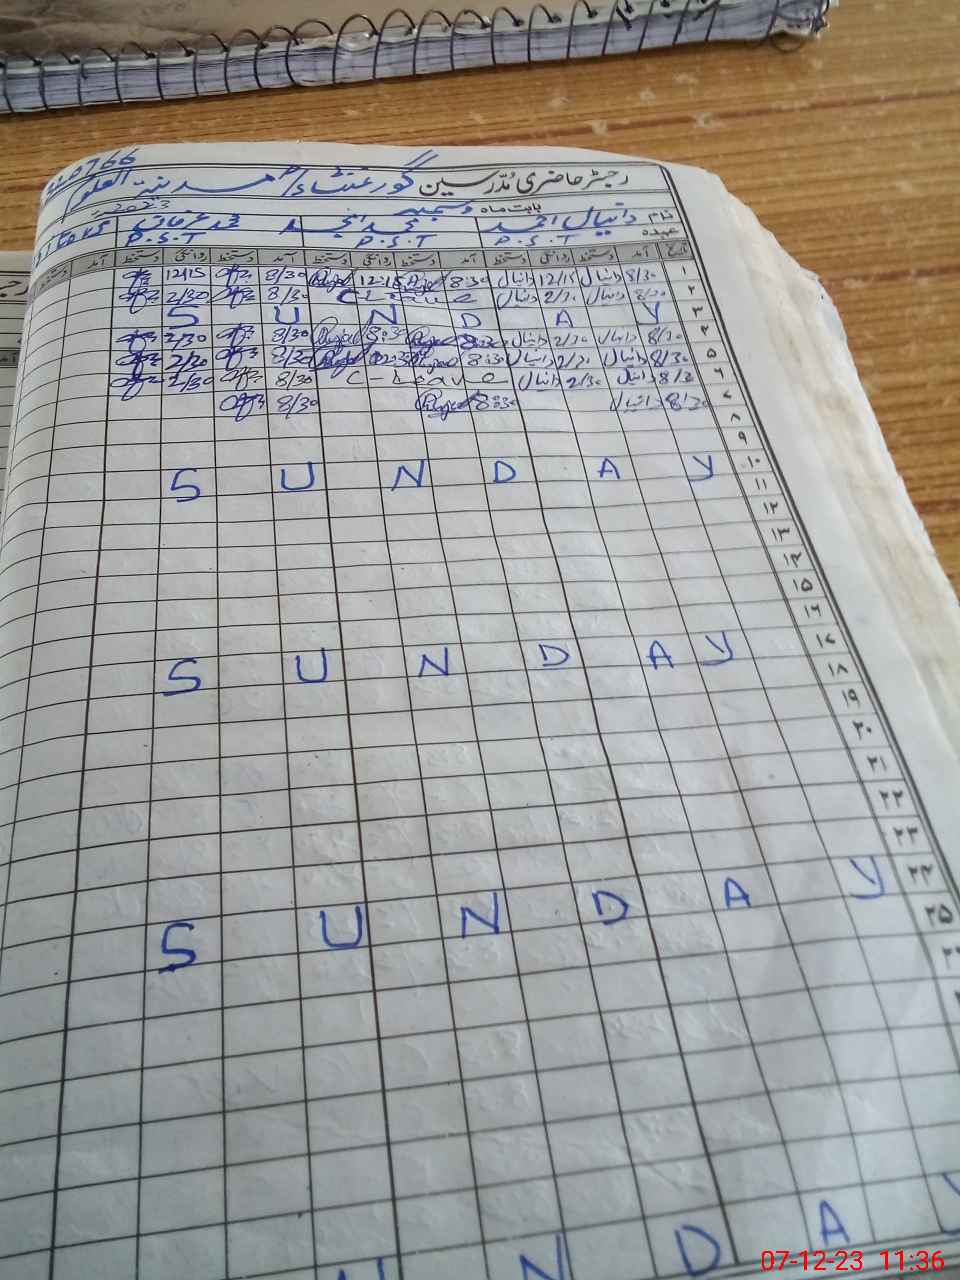 رجسٹر حاضری مدرسین گورنمنٹ مدینۃ العلوم
بابت ماہ دسمبر 2023
نام دانیال احمد محمد امجد محمد عرفان
عہدہ P.S.T P.S.T P.S.T
تاریخ آمد دستخط روانگی دستخط آمد دستخط روانگی دستخط آمد دستخط روانگی دستخط آمد دستخط
۱ 8/30 دانیال 12/15 دانیال 8:30 12:15 8/30 12/15
۲ 8/30 دانیال 2/30 دانیال C-Leave 8/30 2/30
۳ S U N D A Y
۴ 8/30 دانیال 2/30 دانیال 8:30 8/30 2/30
۵ 8/30 دانیال 2/30 دانیال 8:30 8/30 2/30
۶ 8/30 دانیال 2/30 دانیال C-Leave 8/30 2/30
۷ 8/30 دانیال 8:30 8/30
۸
۹
۱۰ S U N D A Y
۱۱
۱۲
۱۳
۱۴
۱۵
۱۶
۱۷ S U N D A Y
۱۸
۱۹
۲۰
۲۱
۲۲
۲۳
۲۴ S U N D A Y
۲۵
U N D A Y
07-12-23 11:36